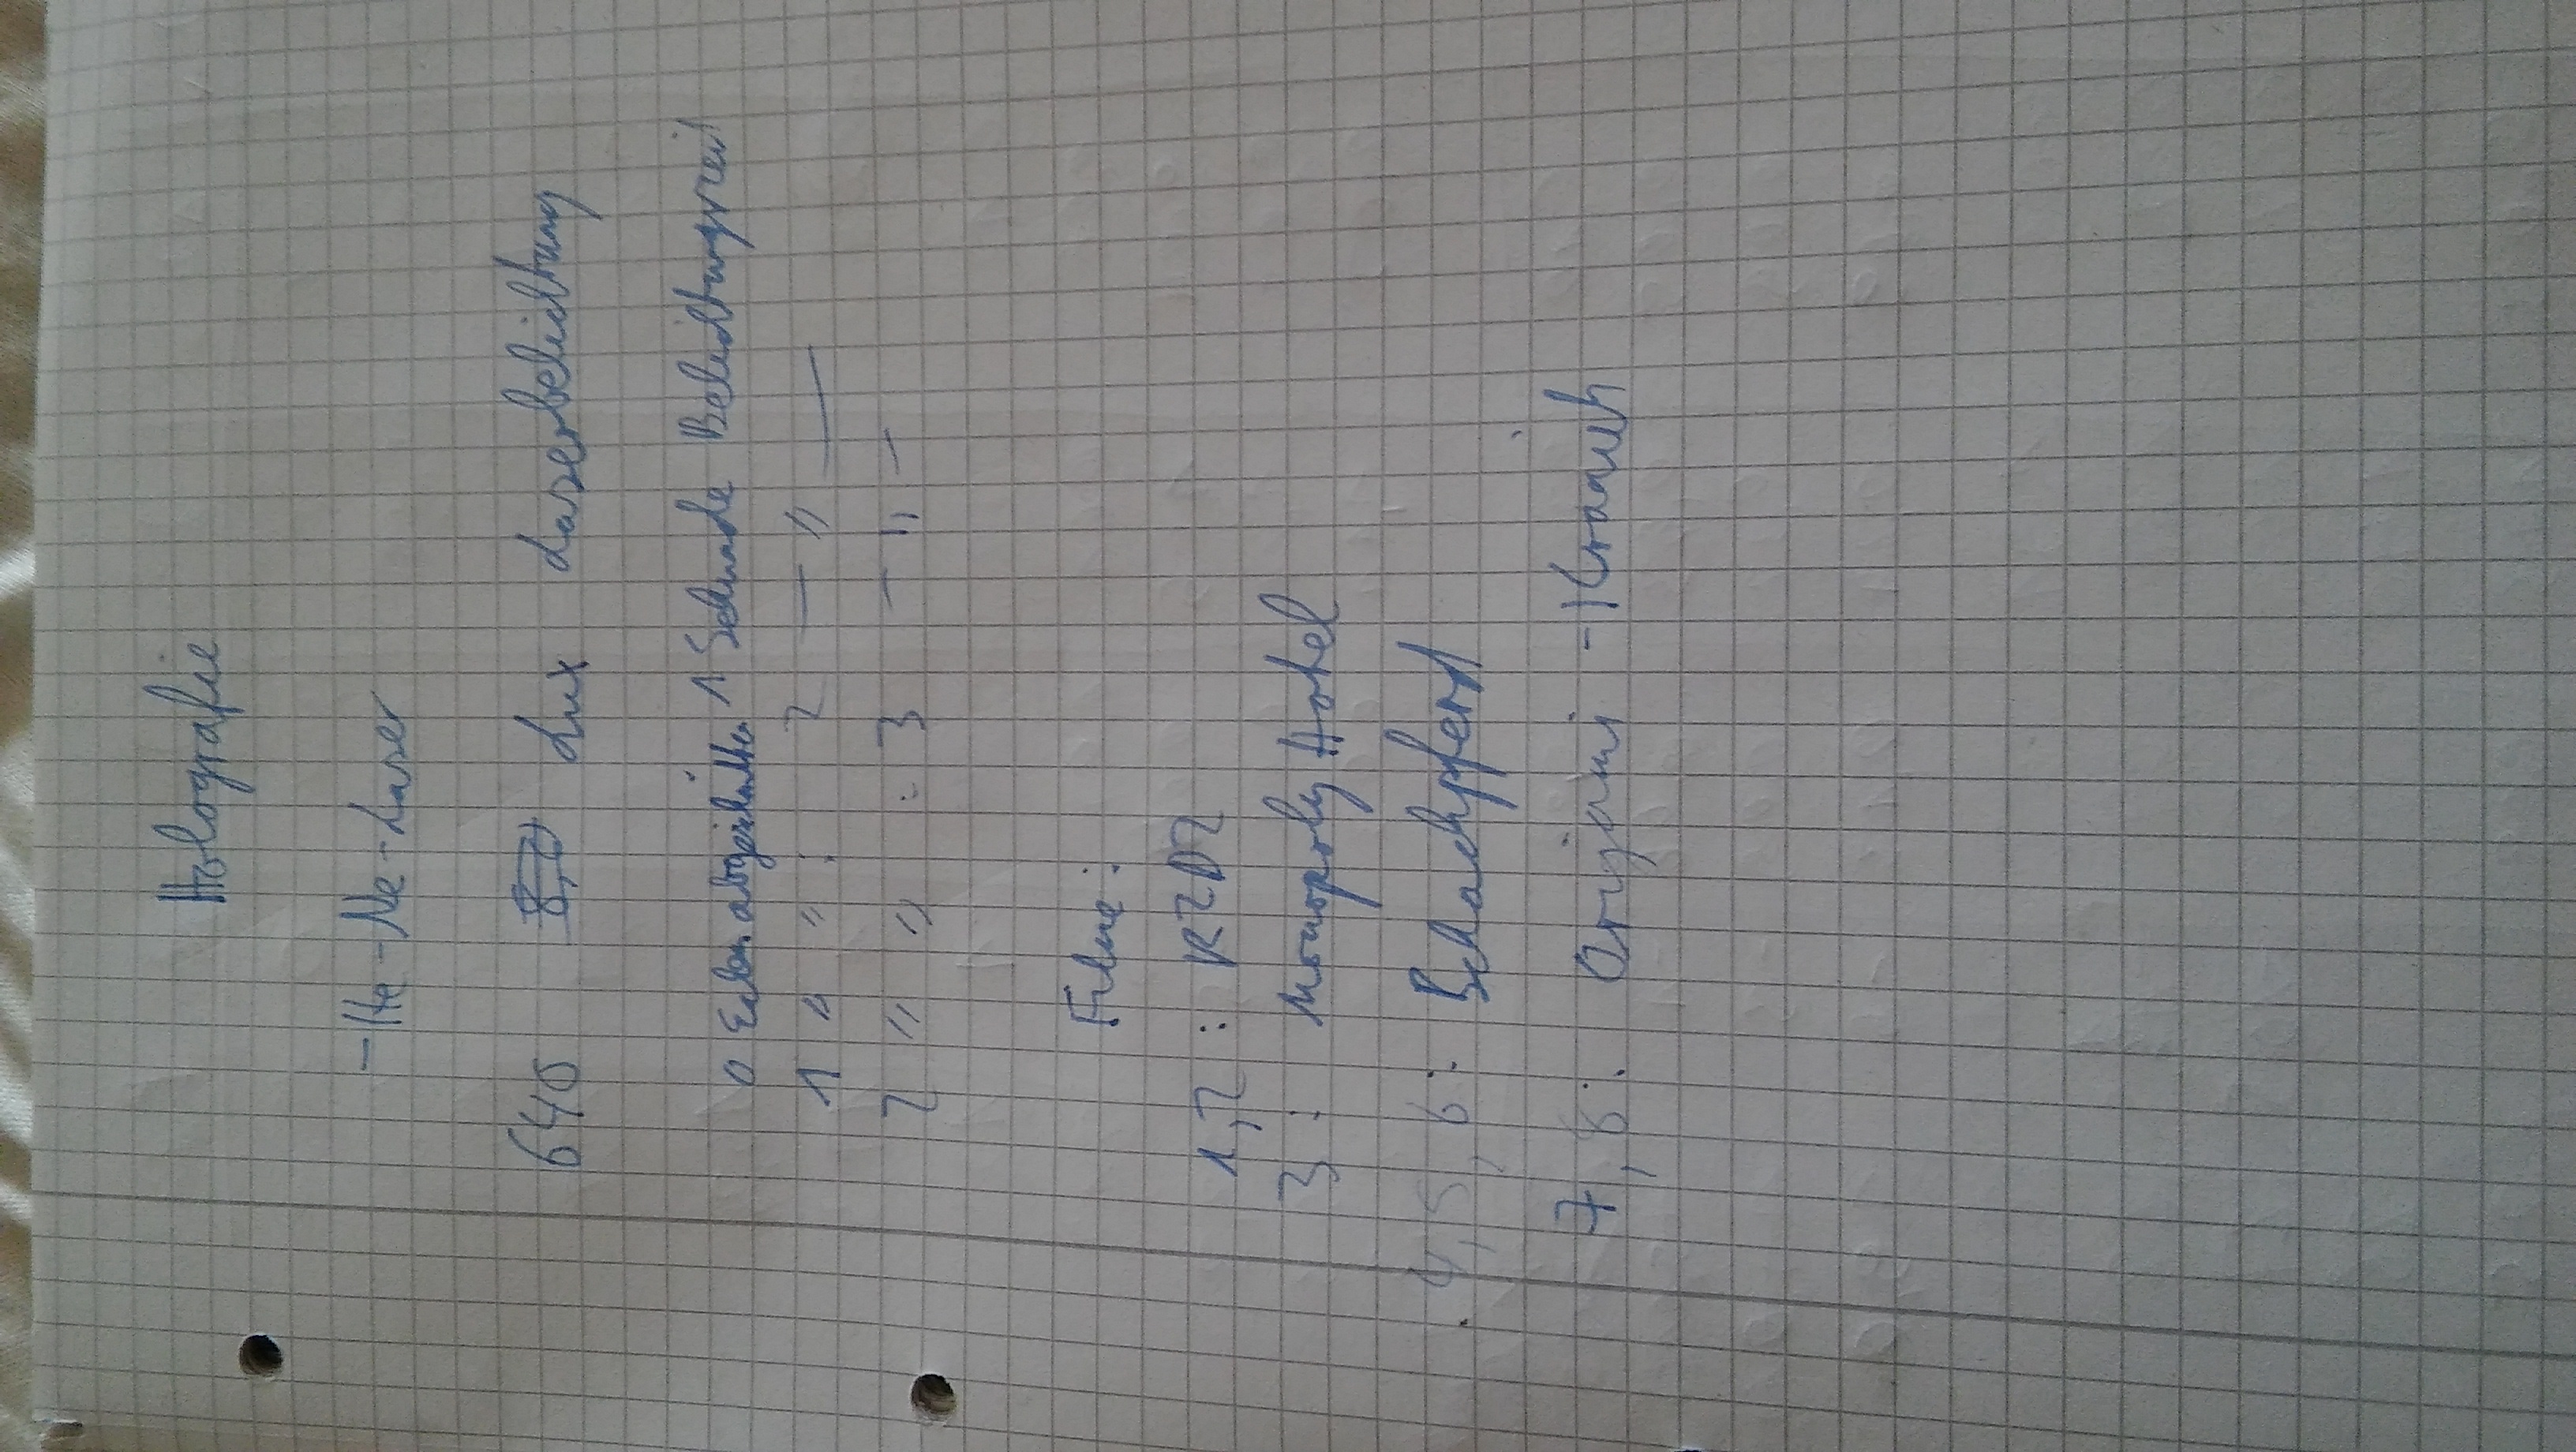 Holografie
- He-Ne-Laser
640 Lux Laserbelichtung
0 Ecken abgeschnitten 1 Sekunde Belichtungszeit
1 " " : 2 — " —
2 " " : 3 — " —
Filme:
1,2 : R2D2
3 : Monopoly Hotel
4, 5, 6 : Schachpferd
7, 8 : Origami - Kranich